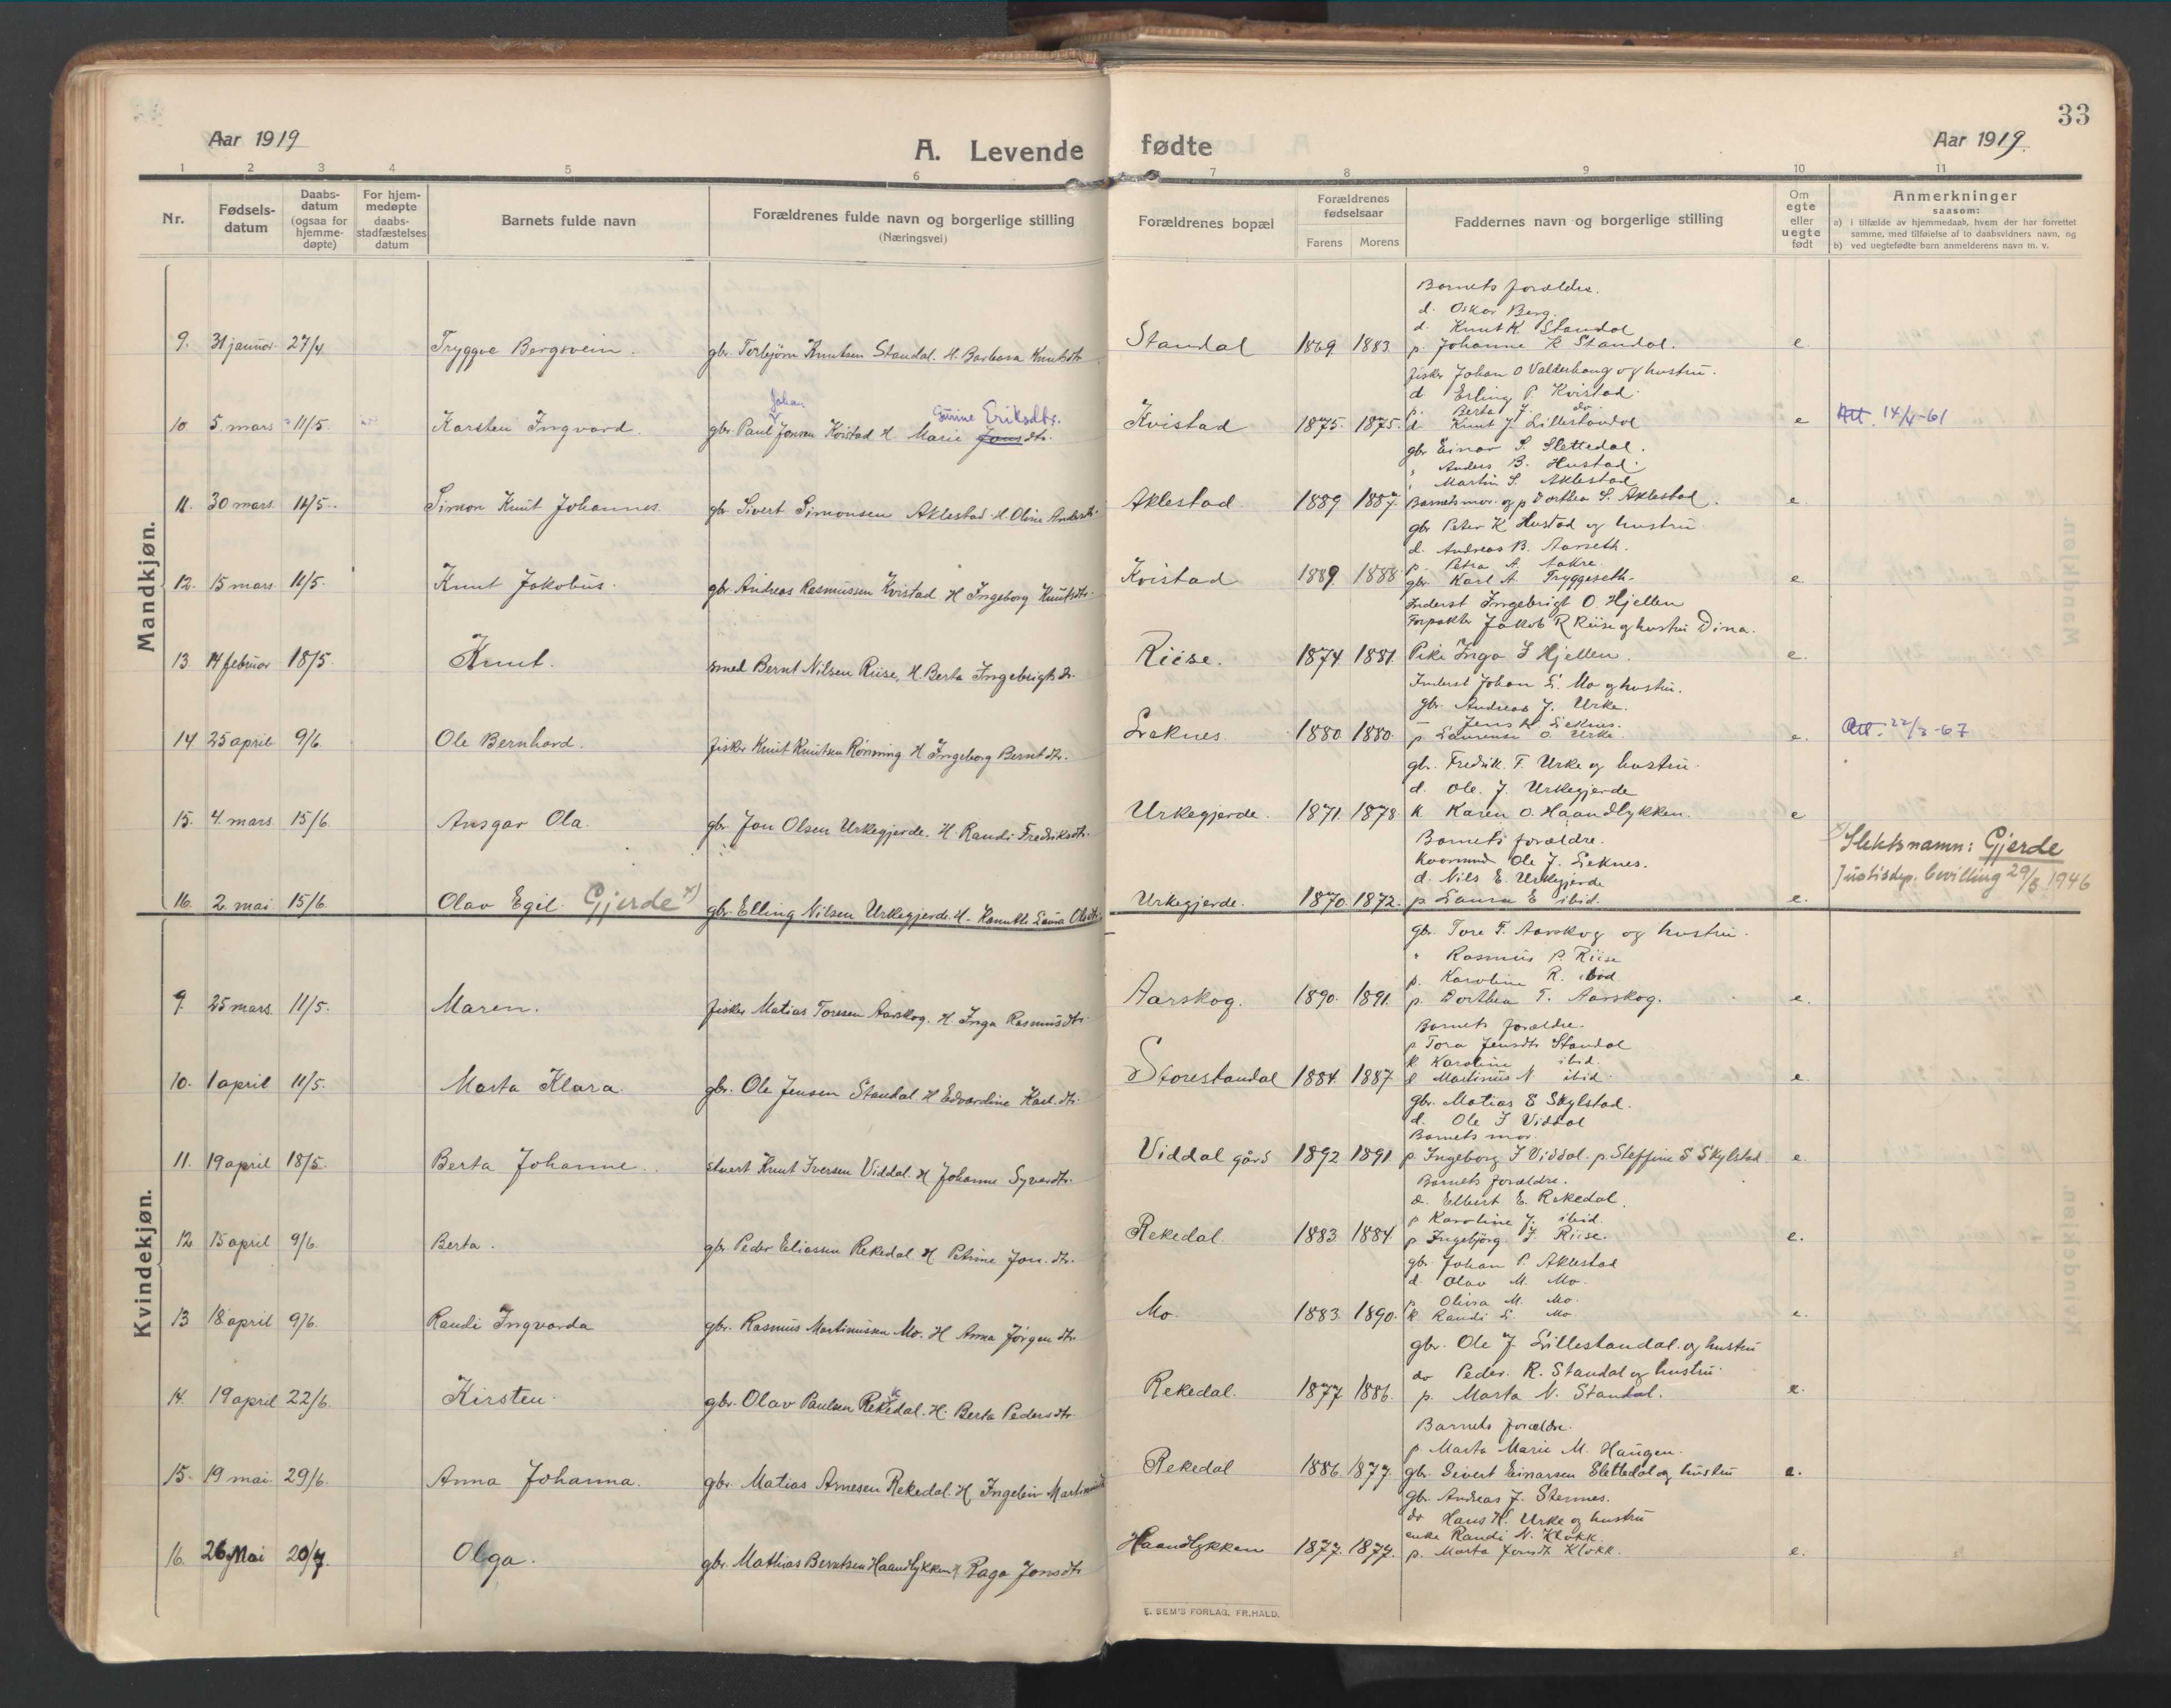 33
Aar 1919
A. Levende fødte
Aar 1919.
1 2 3 4 5 6 7 8 9 10 11
Nr.
Fødsels-
datum
Daabs-
datum
(ogsaa for
hjemme-
døpte)
For hjem-
medøpte
daabs-
stadfæstelses
datum
Barnets fulde navn
Forældrenes fulde navn og borgerlige stilling
(Næringsvei)
Forældrenes bopæl
Forældrenes
fødselsaar
Farens Morens
Faddernes navn og borgerlige stilling
Om
egte
eller
uegte
født
Anmerkninger
saasom:
a) i tilfælde av hjemmedaab, hvem der har forrettet
samme, med tilføielse af to daabsvidners navn, og
b) ved uegtefødte barn anmelderens navn m. v.
Mandkjøn.
Barnets forældre.
d. Oskar Berg.
d. Knut K. Standal
9. 31 januar. 27/4 Tryggve Bergsvein. gbr. Torbjørn Knutsen Standal. H. Barbara Knutsdtr. Standal 1869 1883 p. Johanne K Standal. e.
fisker Johan O Valderhaug og hustru.
d Erling P. Kvistad.
p. Berta J. do
Johan Gurine Eriksdtr.
10 5. mars 11/5. Karsten Ingvard. gbr. Paul Jonsen Kvistad H Marie Jonsdtr. Kvistad 1875. 1875. d Knut J. Lillestandal e Att. 14/4-61
gbr Einar S. Slettedal.
" Anders B. Hustad.
" Martin S. Aklestad
11. 30 mars. 11/5. Simon Knut Johannes. gbr. Sivert Simonsen Aklestad. H. Oline Andersdtr. Aklestad 1889 1887. Barnets mor. og p Dorthea S. Aklestad. e.
gbr Peter K Hustad og hustru.
d. Andreas B. Aarseth.
p. Petra A. Aakre.
12. 15 mars 11/5. Knut Jakobus. gbr. Andreas Rasmussen Kvistad H Ingeborg Knutsdtr. Kvistad 1889. 1888 gbr. Karl A Tryggeseth. e
Inderst Ingebrigt O. Hjellen
Forpakter Jakob R Riise og hustru Dina.
13 14 februar 18/5. Knut. smed Bernt Nilsen Riise, H. Berta Ingebrigtsdtr. Riise. 1874. 1881. Pike Inga I Hjellen. e.
Inderst Johan L. Mo og hustru.
gbr. Andreas J. Urke.
– Jens K Leknes.
14 25 april 9/6. Ole Bernhard. fisker Knut Knutsen Rönning H Ingeborg Berntdtr. Leknes. 1880 1880. p. Laurense O. Urke. e. Att. 22/3-67
gbr. Fredrik. T. Urke og hustru.
d. Ole. J. Urkegjerde
15. 4. mars 15/6. Ansgar Ola. gbr Jon Olsen Urkegjerde. H Randi Fredriksdtr. Urkegjerde. 1871. 1878. k Karen O. Haandlykken. e
Barnets forældre.
Ole J. Leknes.
d. Nils E. Urkegjerde
x) Slektsnamn: Gjerde
Justisdep. bevilling 29/5 1946
16. 2. mai 15/6. Olav Egil. Gjerde x) gbr. Elling Nilsen Urkegjerde. H. Laura Olsdtr. Urkegjerde. 1870. 1872. p Laura E ibid. e.
Kvindekjøn.
gbr. Tore T. Aarskog og hustru.
" Rasmus P. Riise
p. Karoline R. ibid
9. 25 mars. 11/5. Maren. fisker Matias Toresen Aarskog. H. Inga Rasmusdtr. Aarskog. 1890. 1891. p. Dorthea T. Aarskog. e.
Barnets forældre.
p Tora Jensdtr Standal
k Karoline ibid.
10. 1 april 11/5. Marta Klara. gbr. Ole Jensen Standal. H Edvardine Karl.dtr. Storestandal 1884. 1887 d Martinus N. ibid. e.
gbr. Matias S Skylstad.
d. Ole I Viddal
Barnets mor.
11. 19 april 18/5. Berta Johanne. Knut Iversen Viddal. H Johanne Syverdtr. Viddal gård 1892 1891 p. Ingeborg I Viddal. p. Steffine S Skylstad. e.
Barnets forældre.
d. Elbert E. Rekedal.
p Karoline J. ibid.
12. 15 april 9/6. Berta. gbr. Peder Eliassen Rekedal. H Petrine Jon.dtr. Rekedal 1883. 1884. p Ingebjörg J. Riise. e.
gbr. Johan P. Aklestad
d. Olav M. Mo.
p. Olivia M. Mo.
13 18 april 9/6. Randi Ingvarda gbr. Rasmus Martinusen Mo. H Anna Jørgen dtr. Mo. 1883. 1890. k Randi L. Mo. e.
gbr. Ole J. Lillestandal. og hustru
do Peder. R. Standal og hustru.
14. 19 april 22/6. Kirsten. gbr. Olav Paulsen Rekedal. H. Berta Pedersdtr. Rekedal. 1877 1886. p. Marta N. Standal. e.
Barnets forældre.
p Marta Marie M. Haugen.
15. 19 mai. 29/6. Anna Johanna. gbr. Matias Arnesen Rekedal. H Ingeleiv Rekedal 1886. 1877. gbr. Sivert Einarsen Slettedal og hustru e.
gbr. Andreas J. Stennes.
do Hans K. Urke og hustru
enke Randi N. Klokk.
16. 26 Mai 20/7. Olga. gbr. Mathias Berntsen Haandlykken H Raga Jonsdtr Haandlykken 1877. 1877. p. Marta Jonsdtr Klokk. e.
E. SEM'S FORLAG. FR.HALD.